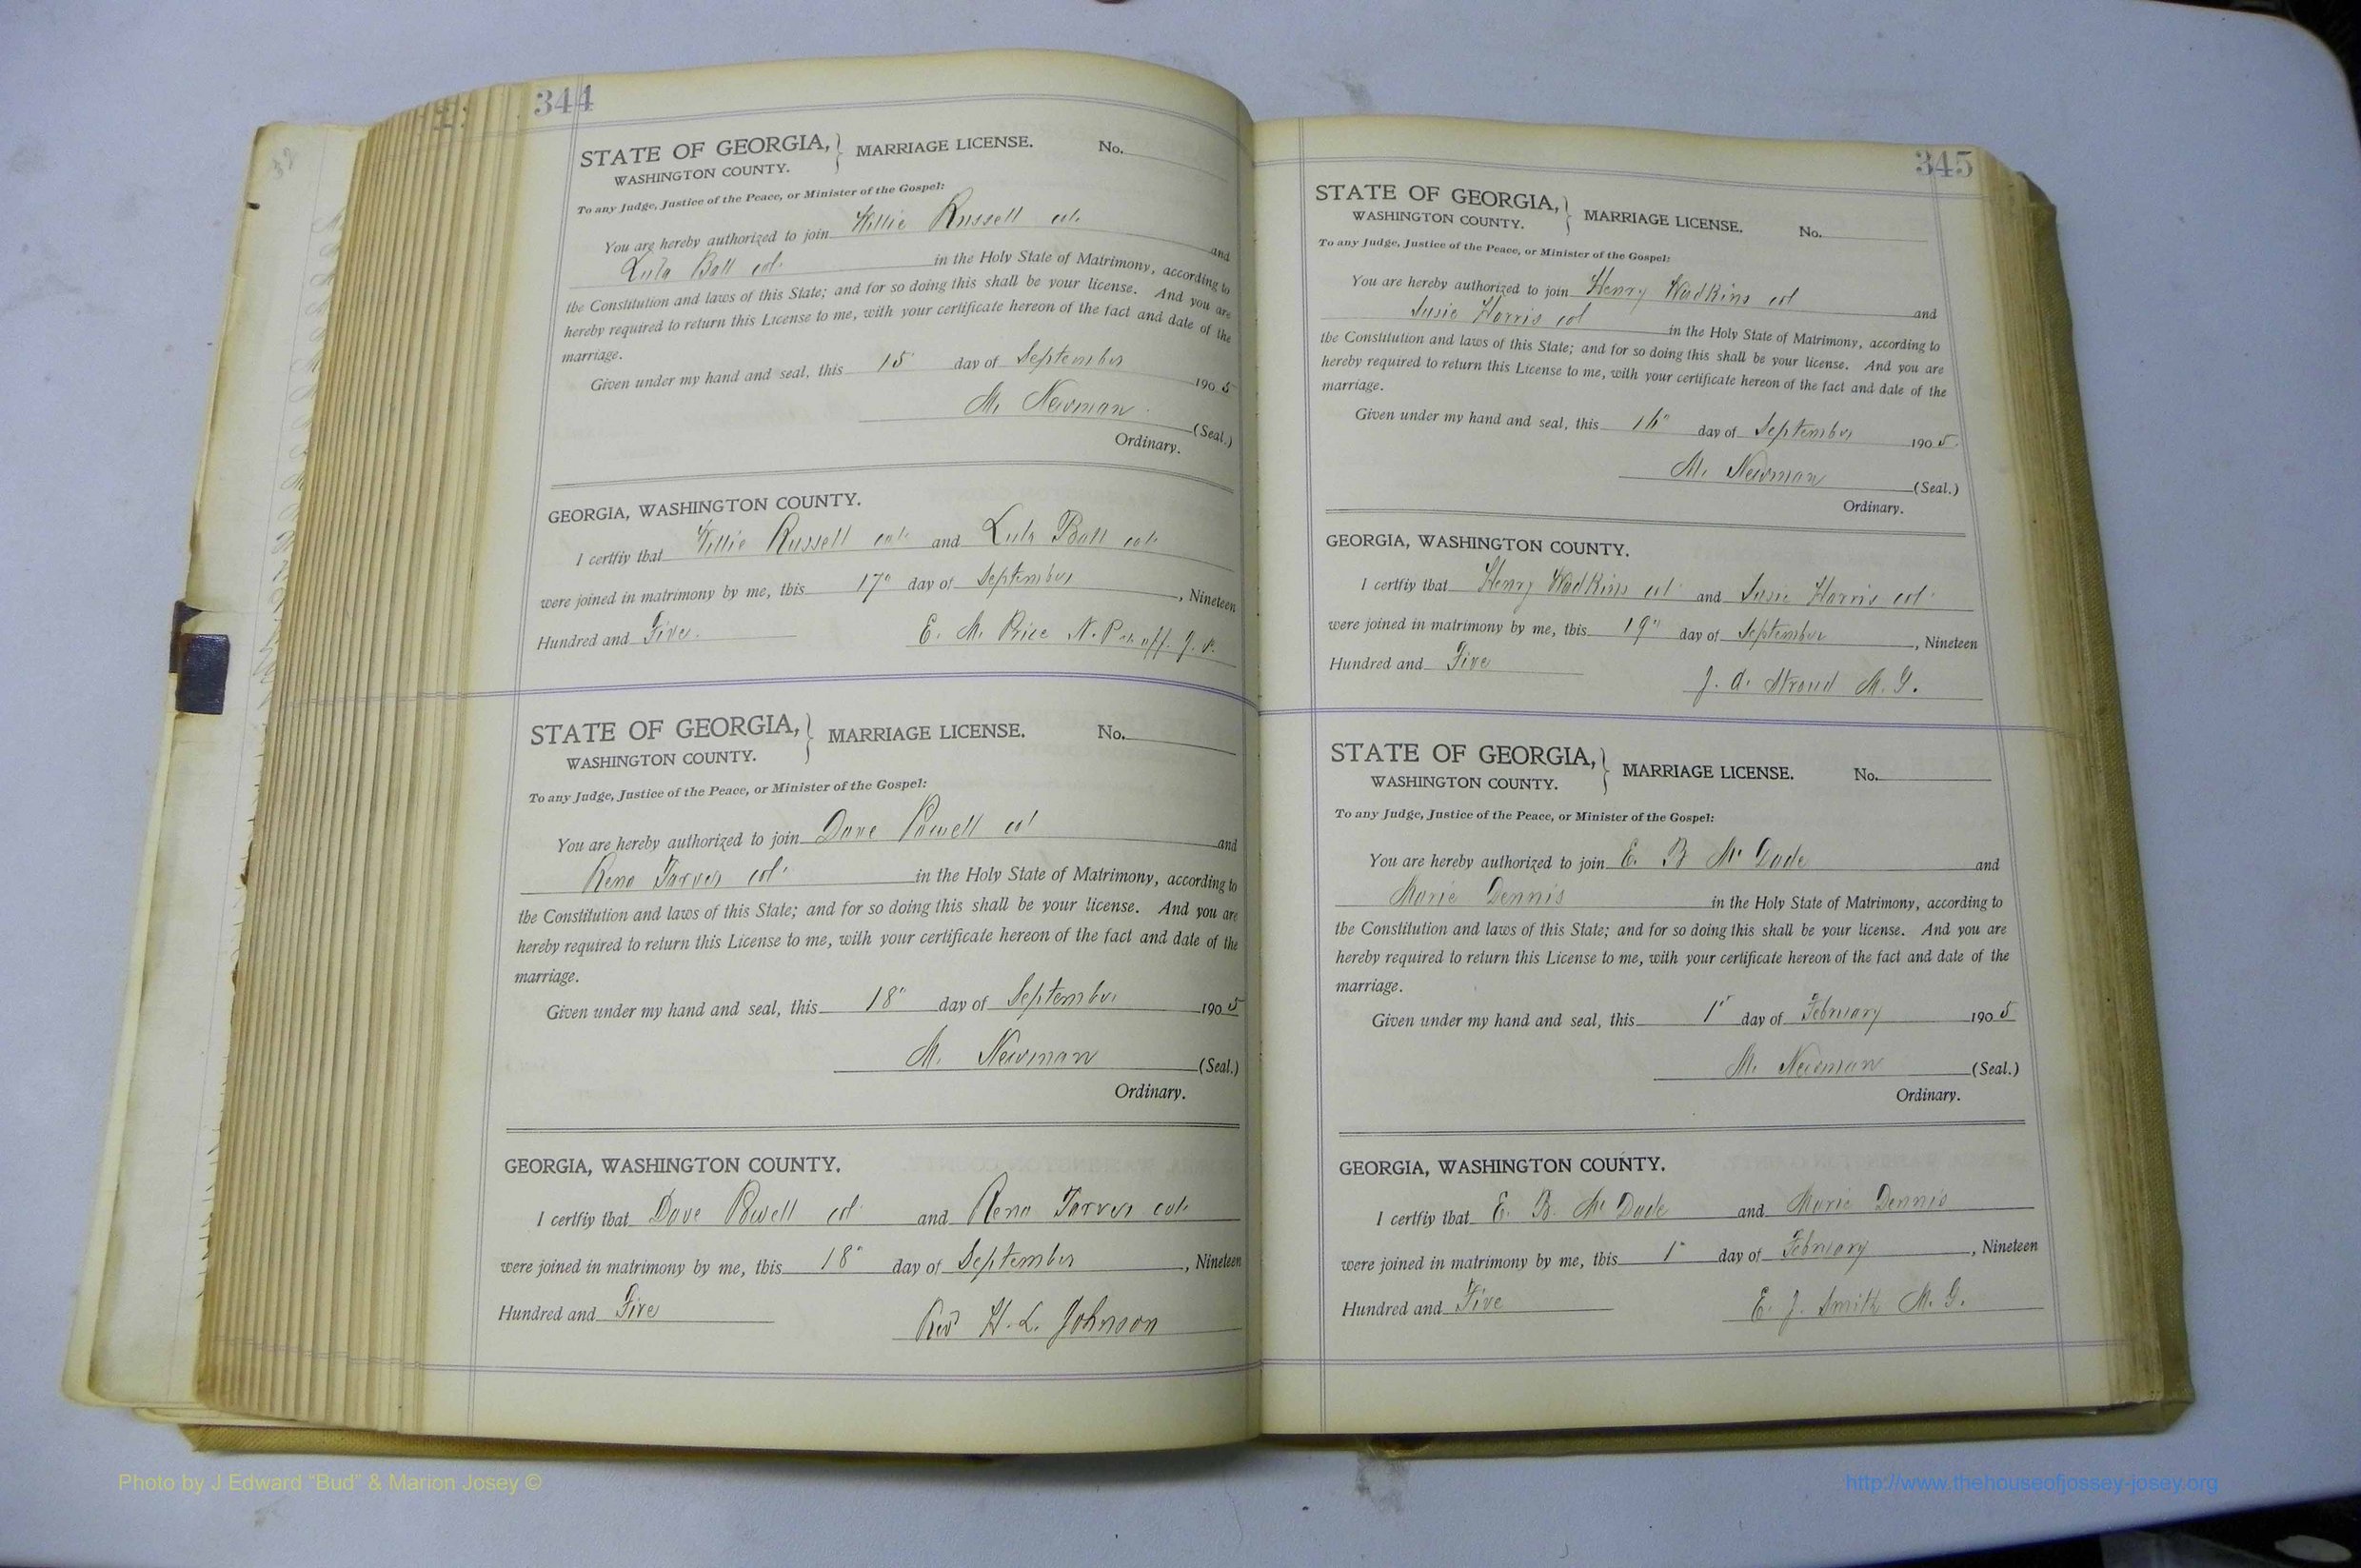 344
STATE OF GEORGIA, } MARRIAGE LICENSE. No.
WASHINGTON COUNTY.
To any Judge, Justice of the Peace, or Minister of the Gospel:
You are hereby authorized to join Willie Russell col. and
Lula Ball col. in the Holy State of Matrimony, according to
the Constitution and laws of this State; and for so doing this shall be your license. And you are
hereby required to return this License to me, with your certificate hereon of the fact and date of the
marriage.
Given under my hand and seal, this 15" day of September 1905
M. Newman (Seal.)
Ordinary.
GEORGIA, WASHINGTON COUNTY.
I certfiy that Willie Russell col. and Lula Ball col.
were joined in matrimony by me, this 17" day of September, Nineteen
Hundred and Five. E. M. Price N. P. & off. J. P.
STATE OF GEORGIA, } MARRIAGE LICENSE. No.
WASHINGTON COUNTY.
To any Judge, Justice of the Peace, or Minister of the Gospel:
You are hereby authorized to join Dave Powell col and
Rena Tarver col. in the Holy State of Matrimony, according to
the Constitution and laws of this State; and for so doing this shall be your license. And you are
hereby required to return this License to me, with your certificate hereon of the fact and date of the
marriage.
Given under my hand and seal, this 18" day of September 1905
M. Newman (Seal.)
Ordinary.
GEORGIA, WASHINGTON COUNTY.
I certfiy that Dave Powell col and Rena Tarver col.
were joined in matrimony by me, this 18" day of September, Nineteen
Hundred and Five Rev H. L. Johnson
345
STATE OF GEORGIA, } MARRIAGE LICENSE. No.
WASHINGTON COUNTY.
To any Judge, Justice of the Peace, or Minister of the Gospel:
You are hereby authorized to join Henry Wadkins col and
Susie Harris col in the Holy State of Matrimony, according to
the Constitution and laws of this State; and for so doing this shall be your license. And you are
hereby required to return this License to me, with your certificate hereon of the fact and date of the
marriage.
Given under my hand and seal, this 16" day of September 1905
M. Newman (Seal.)
Ordinary.
GEORGIA, WASHINGTON COUNTY.
I certfiy that Henry Wadkins col and Susie Harris col.
were joined in matrimony by me, this 19" day of September, Nineteen
Hundred and Five J. A. Stroud M. G.
STATE OF GEORGIA, } MARRIAGE LICENSE. No.
WASHINGTON COUNTY.
To any Judge, Justice of the Peace, or Minister of the Gospel:
You are hereby authorized to join E. B Mc Dade and
Marie Dennis in the Holy State of Matrimony, according to
the Constitution and laws of this State; and for so doing this shall be your license. And you are
hereby required to return this License to me, with your certificate hereon of the fact and date of the
marriage.
Given under my hand and seal, this 1" day of February 1905
M. Newman (Seal.)
Ordinary.
GEORGIA, WASHINGTON COUNTY.
I certfiy that E. B. Mc Dade and Marie Dennis
were joined in matrimony by me, this 1" day of February, Nineteen
Hundred and Five E. J. Smith M. G.
Photo by J Edward “Bud” & Marion Josey ©
http://www.thehouseofjossey-josey.org